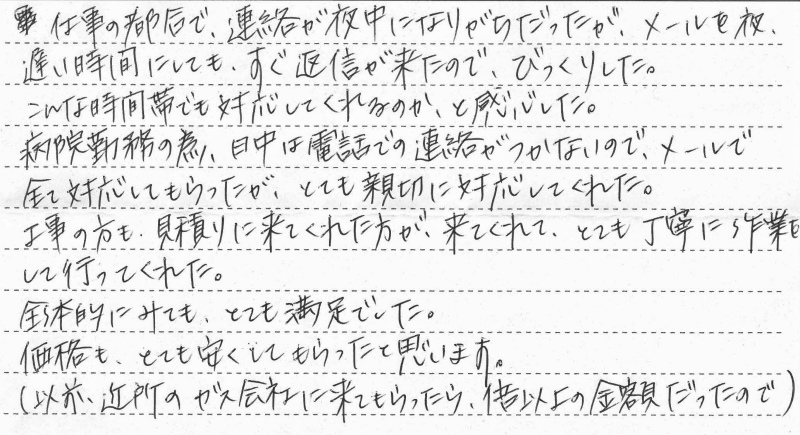 仕事の都合で、連絡が夜中になりがちだったが、メールを夜、
遅い時間にしても、すぐ返信が来たので、びっくりした。
こんな時間帯でも対応してくれるのか、と感心した。
病院勤務の為、日中は電話での連絡がつかないので、メールで
全て対応してもらったが、とても親切に対応してくれた。
工事の方も、見積りに来てくれた方が、来てくれて、とても丁寧に作業を
して行ってくれた。
全体的にみても、とても満足でした。
価格も、とても安くしてもらったと思います。
(以前、近所のガス会社に来てもらったら、倍以上の金額だったので)